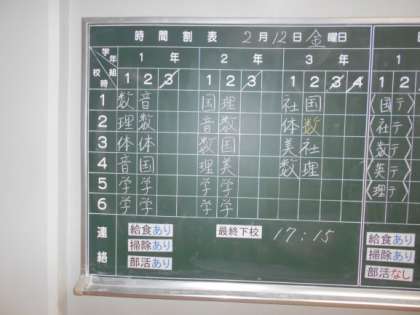 時間割表 2月12日金曜日
学年 1年 2年 3年
校時 組 1 2 3 1 2 3 1 2 3 4
1 数 音 国 理 社 国 〈国テ〉
2 理 数 音 数 体 数 〈社テ〉
3 体 体 数 国 美 社 〈数テ〉
4 音 国 理 美 数 理 〈英テ〉
5 学 学 学 学 〈理テ〉
6 学 学 学 学
連絡
給食あり 最終下校 17:15 給食あり
掃除あり 掃除あり
部活あり 部活なし